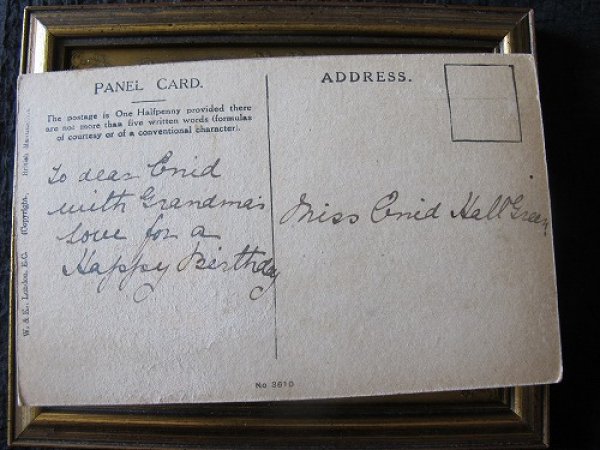 PANEL CARD.
The postage is One Halfpenny provided there
are not more than five written words (formulas
of courtesy or of a conventional character).
To dear Enid
with Grandma's
love for a
Happy Birthday
ADDRESS.
Miss Enid Hall Green
No 3610
W. & K., London, E.C. (Copyright. British